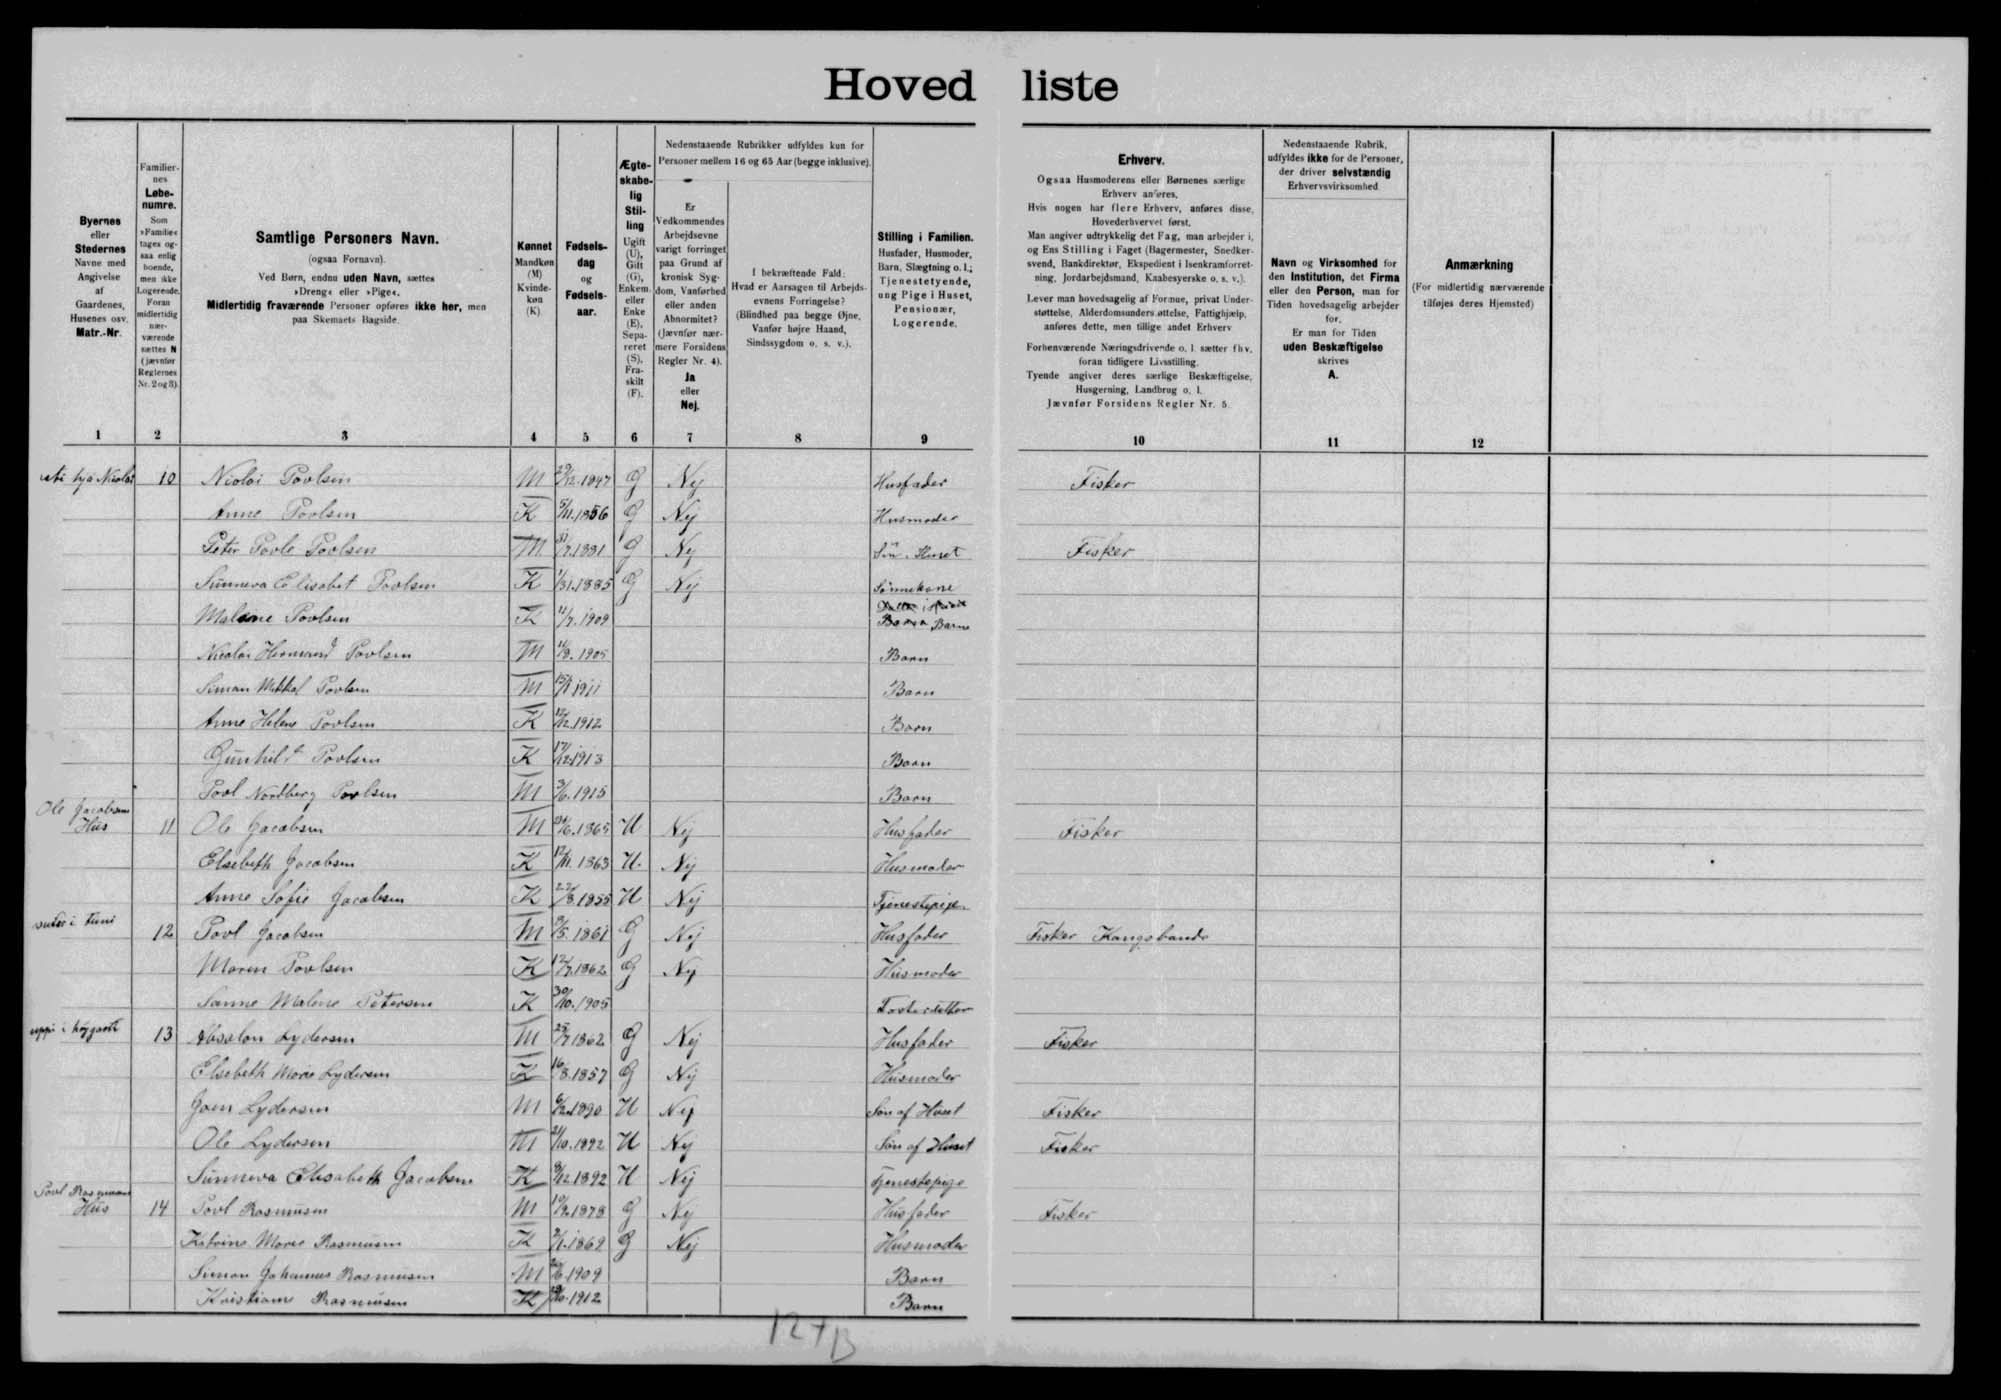 Hovedliste
Byernes eller Stedernes Navne med Angivelse af Gaardenes, Husenes osv. Matr.-Nr.
Familiernes Løbenumre. Som »Familie« tages ogsaa enlig boende, men ikke Logerende. Foran midlertidig nærværende sættes N (jævnfør Reglernes Nr. 2 og 3).
Samtlige Personers Navn.
(ogsaa Fornavn).
Ved Børn, endnu uden Navn, sættes
»Dreng« eller »Pige«.
Midlertidig fraværende Personer opføres ikke her, men
paa Skemaets Bagside.
Kønnet Mandkøn (M) Kvindekøn (K)
Fødselsdag og Fødselsaar.
Ægteskabelig Stilling Ugift (U), Gift (G), Enkem. eller Enke (E), Separeret (S), Fraskilt (F).
Nedenstaaende Rubrikker udfyldes kun for
Personer mellem 16 og 65 Aar (begge inklusive).
Er Vedkommendes Arbejdsevne varigt forringet paa Grund af kronisk Sygdom, Vanførhed eller anden Abnormitet? (Jævnfør nærmere Forsidens Regler Nr. 4). Ja eller Nej.
I bekræftende Fald: Hvad er Aarsagen til Arbejdsevnens Forringelse? (Blindhed paa begge Øjne, Vanfør højre Haand, Sindssygdom o. s. v.).
Stilling i Familien.
Husfader, Husmoder,
Barn, Slægtning o. l.;
Tjenestetyende,
ung Pige i Huset,
Pensionær,
Logerende.
Erhverv.
Ogsaa Husmoderens eller Børnenes særlige
Erhverv anføres.
Hvis nogen har flere Erhverv, anføres disse,
Hovederhvervet først.
Man angiver udtrykkelig det Fag, man arbejder i,
og Ens Stilling i Faget (Bagermester, Snedkersvend, Bankdirektør, Ekspedient i Isenkramforretning, Jordarbejdsmand, Kaabesyerske o. s. v.).
Lever man hovedsagelig af Formue, privat Understøttelse, Alderdomsunderstøttelse, Fattighjælp,
anføres dette, men tillige andet Erhverv
Forhenværende Næringsdrivende o. l. sætter fhv.
foran tidligere Livsstilling.
Tyende angiver deres særlige Beskæftigelse,
Husgerning, Landbrug o. l.
Jævnfør Forsidens Regler Nr. 5.
Nedenstaaende Rubrik,
udfyldes ikke for de Personer,
der driver selvstændig
Erhvervsvirksomhed
Navn og Virksomhed for
den Institution, det Firma
eller den Person, man for
Tiden hovedsagelig arbejder
for.
Er man for Tiden
uden Beskæftigelse
skrives
A.
Anmærkning
(For midlertidig nærværende
tilføjes deres Hjemsted)
1 2 3 4 5 6 7 8 9 10 11 12
hjá Nicolai 10 Nicolai Poulsen M 29/12.1847 G Nej Husfader Fisker
Anne Poulsen K 5/11.1856 G Nej Husmoder
Peter Poule Poulsen M 31/7.1881 G Nej Søn Huset Fisker
Sunneva Elisabet Poulsen K 1/31.1885 G Nej Sønnekone
Malene Poulsen K 11/7.1909 Barn Barn
Nicolai Poulsen M 11/9.1905 Barn
Simun Mikkal Poulsen M 1911 Barn
Anne Helene Poulsen K 12/12.1912 Barn
Gunhild Poulsen K 17/12.1913 Barn
Poul Nordberg Poulsen M 3/6.1915 Barn
Ole Jacobsens
Hus 11 Ole Jacobsen M 24/6.1865 U Nej Husfader Fisker
Elsebeth Jacobsen K 12/11.1863 U. Nej Husmoder
Anne Sofie Jacobsen K 22/8.1855 U Nej Tjenestepige
i túni 12 Poul Jacobsen M 9/5.1861 G Nej Husfader Fisker Kongsbonde
Maren Poulsen K 12/7.1862 G Nej Husmoder
Sanne Malene Petersen K 30/10.1905 Fosterdatter
uppi i 13 Absalon Lydersen M 25/7 1862 G Nej Husfader Fisker
Elsebeth Marie Lydersen K 16/8.1857 G Nej Husmoder
Joen Lydersen M 6/2.1890 U Nej Søn af Huset Fisker
Ole Lydersen M 21/10.1892 U Nej Søn af Huset Fisker
Sunneva Elisabeth Jacobsen K 8/12.1892 U Nej Tjenestepige
Poul Rasmussen
Hus 14 Poul Rasmussen M 10/2.1878 G Nej Husfader Fisker
Katrine Marie Rasmussen K 2/1.1869 G Nej Husmoder
Simon Johannes Rasmussen M 20/6.1909 Barn
Kristiane Rasmussen K 1912 Barn
12+13